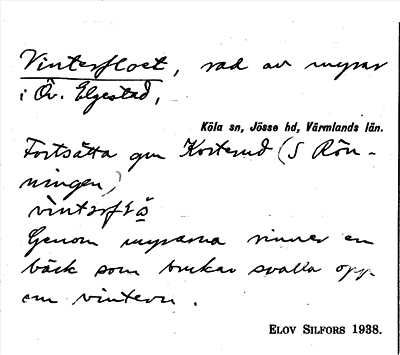 Vinterfloet, rad av myrar
i Öv. Elgestad,
Köla sn, Jösse hd, Värmlands län.
Fortsätta gm Kosterud (S Rön-
ningen)
Genom myrarna rinner en
bäck som brukar svalla opp
om vintern.
ELOV SILFORS 1938.